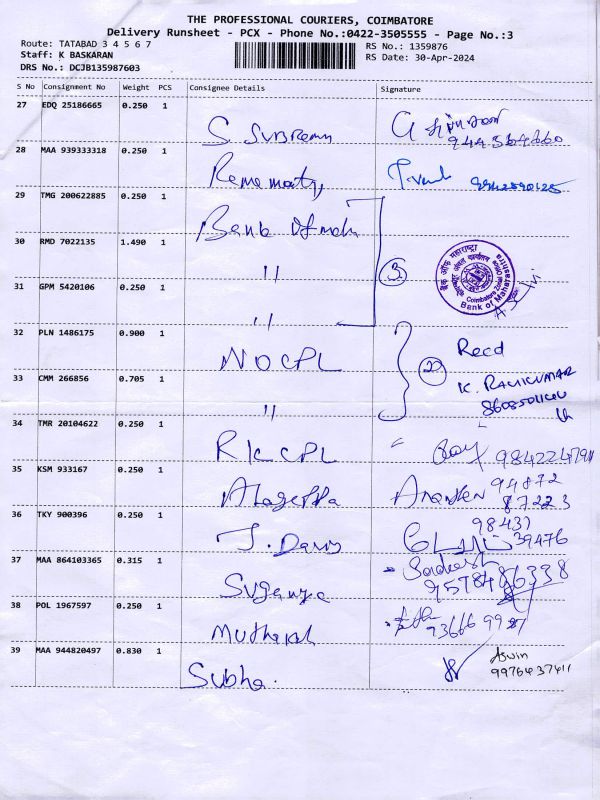 THE PROFESSIONAL COURIERS, COIMBATORE
Delivery Runsheet - PCX - Phone No.:0422-3505555 - Page No.:3
Route: TATABAD 3 4 5 6 7
RS No.: 1359876
Staff: K BASKARAN
RS Date: 30-Apr-2024
DRS No.: DCJB135987603
S No Consignment No Weight PCS Consignee Details Signature
27 EDQ 25186665 0.250 1
S. Subramu
28 MAA 939333318 0.250 1
29 TMG 200622885 0.250 1
Bank
30 RMD 7022135 1.490 1
" 3
बैंक ऑफ महाराष्ट्र
Coimbatore Zonal Office
Bank of Maharashtra
31 GPM 5420106 0.250 1
"
32 PLN 1486175 0.900 1
NOCPL 2 Recd
K. RAVIKUMAR
33 CMM 266856 0.705 1
"
34 TMR 20104622 0.250 1
RKCPL
35 KSM 933167 0.250 1
Alageppa
94872
87223
36 TKY 900396 0.250 1
98437
39476
37 MAA 864103365 0.315 1
Suganya
9578486338
38 POL 1967597 0.250 1
39 MAA 944820497 0.830 1
Subha.
Aswin
9976437411